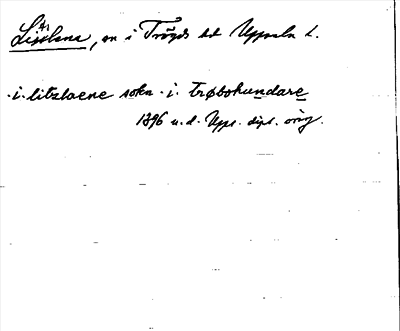 Litslena, sn i Trögds hd Uppsala l.
·i·litzlaene sokn ·i· trøbohundare
1396 u.d. Upps. dipl. orig.